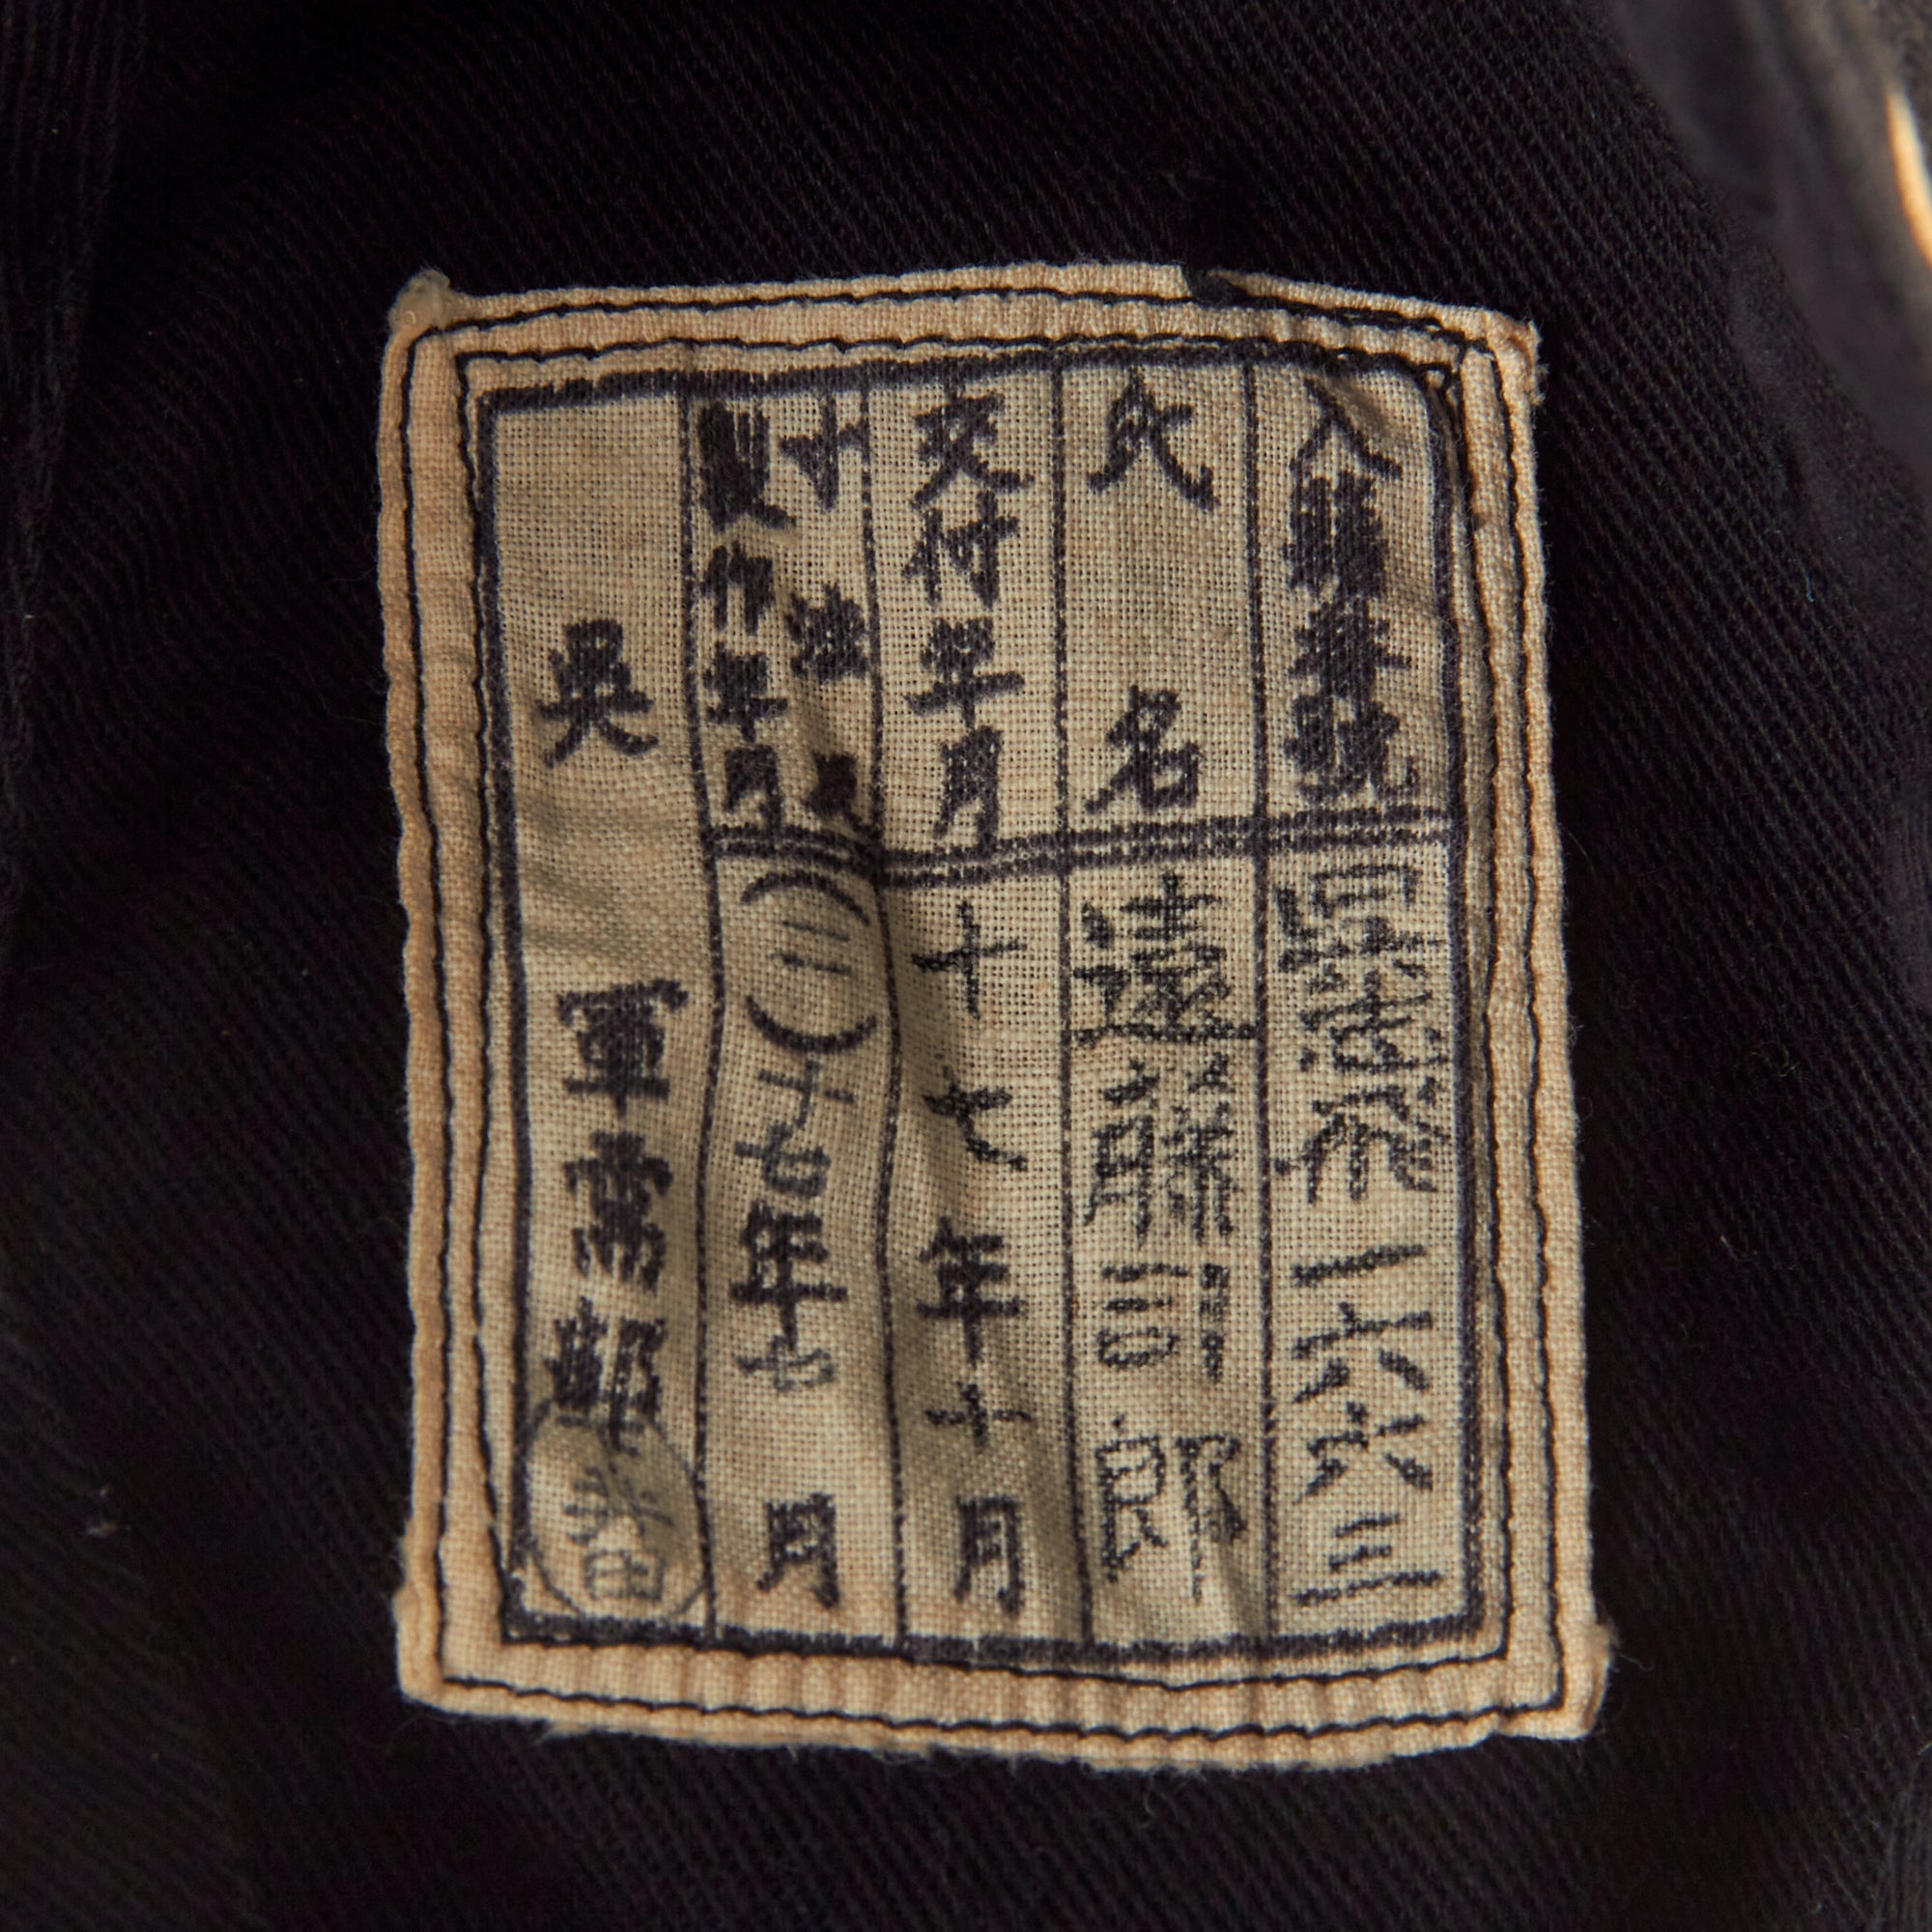 入籍番號 一六六三
氏名 遠藤訓郎
交付年月 十七年十月
寸法及
製作年月 (二)十七年七月
呉軍需部